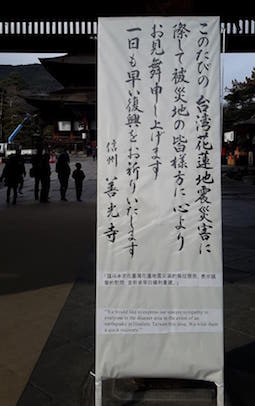 このたびの 台湾花蓮地震災害に
際して被災地の皆様方に心より
お見舞申し上げます
一日も早い復興をお祈りいたします
信州 善光寺
誠摯的慰問,並祈
"We would like to express our sincere sympathy to
everyone in the disaster area in the event of an
earthquake in Hualien, Taiwan this time. We wish them
a quick recovery."